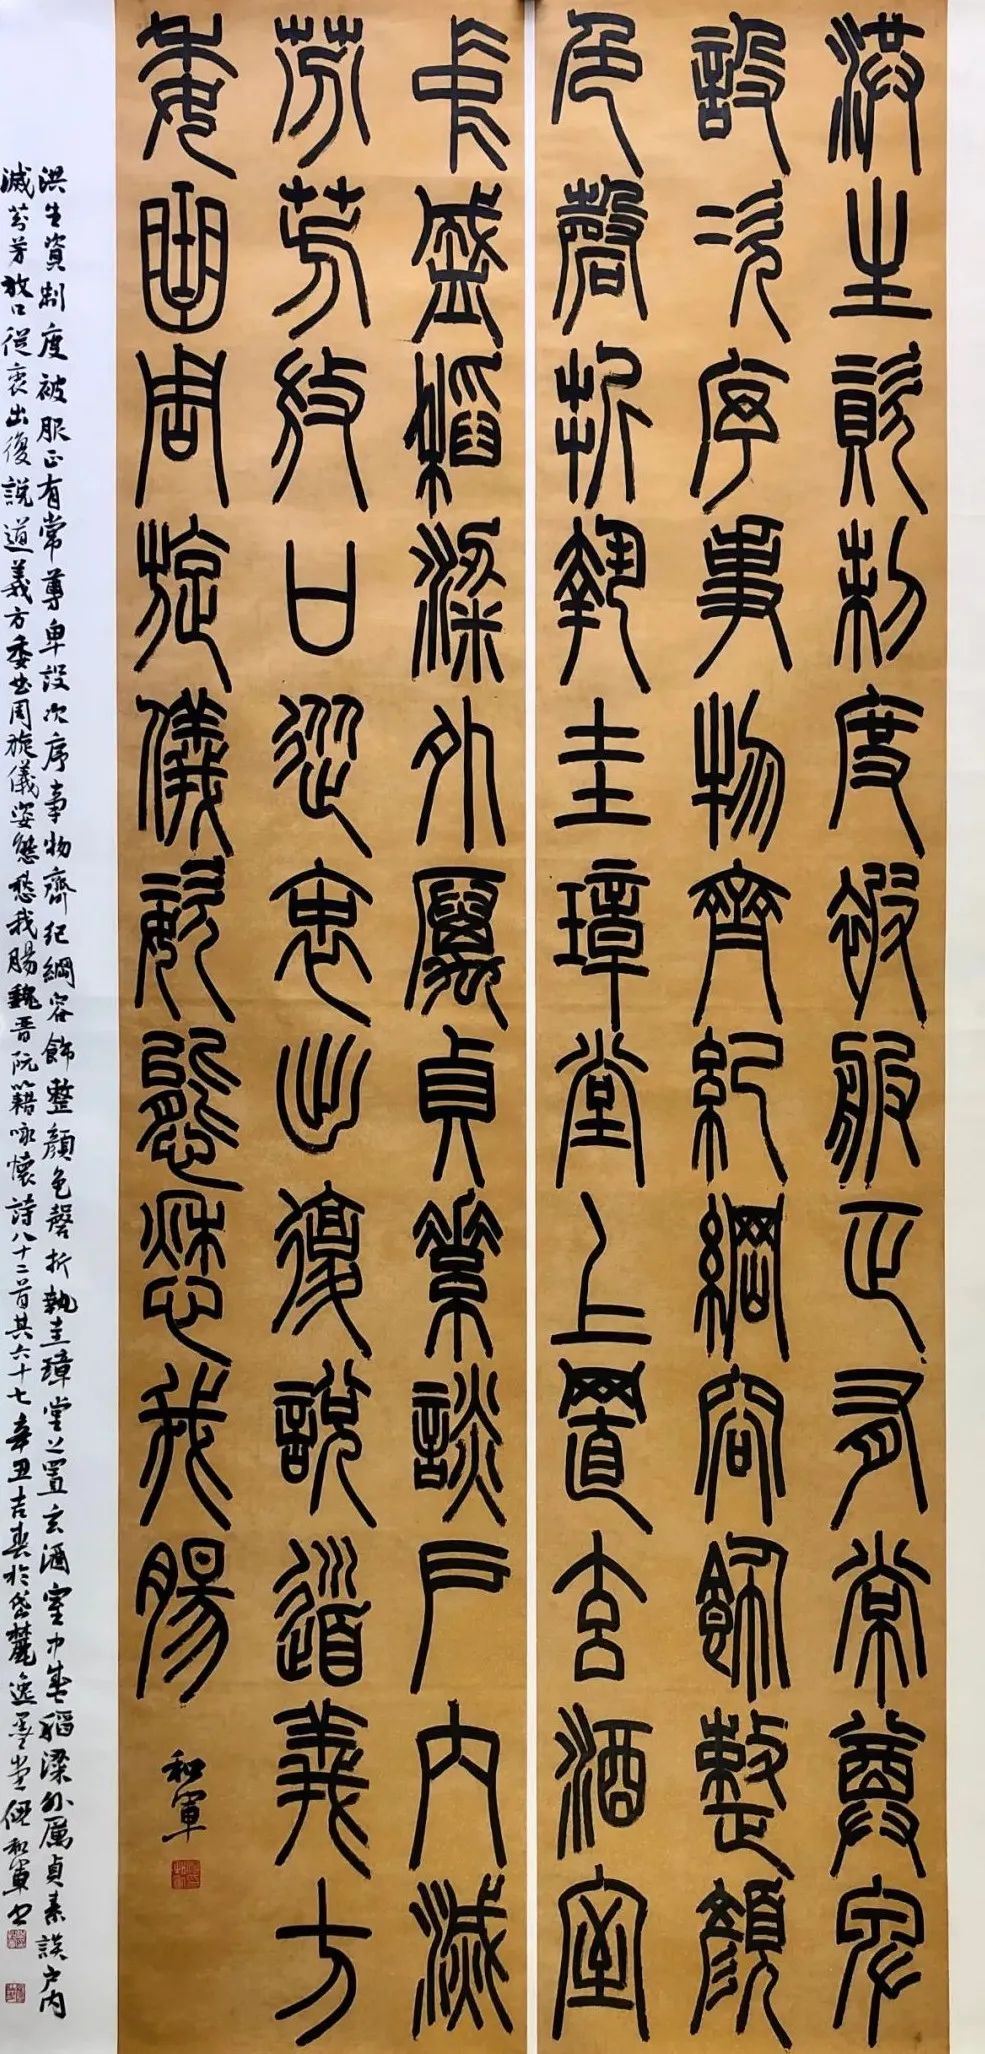 洪生資制度被服正有常尊卑
設次序事物齊紀綱容飾整顏
色磬折執圭璋堂上置玄酒室
中盛稻粱外厲貞素談戶內滅
芬芳放口從衷出復說道義方
委曲周旋儀姿態愁我腸
和軍
洪生資制度被服正有常尊卑設次序事物齊紀綱容飾整顏色磬折執圭璋堂上置玄酒室中盛稻粱外厲貞素談戶內
滅芬芳放口從衷出復說道義方委曲周旋儀姿態愁我腸魏晉阮籍咏懷詩八十二首其六十七辛丑吉春於岱麓逸墨堂和軍書